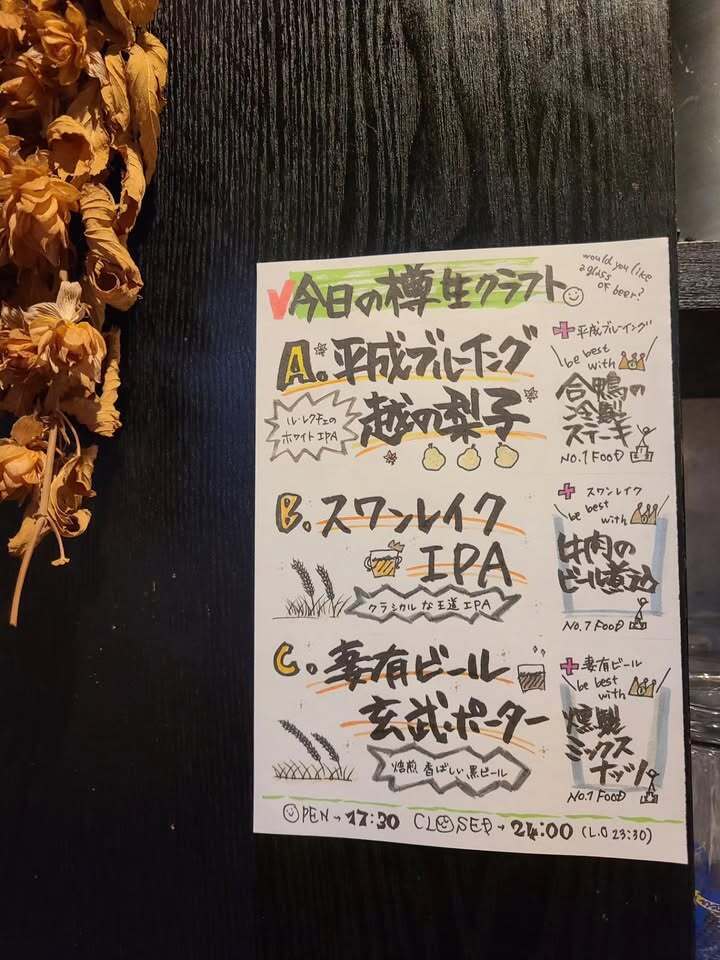 今日の樽生クラフト
would you like
a glass
of beer?
A. 平成ブルーイング
越の梨子
ル・レクチェの
ホワイトIPA
+平成ブルーイング
be best
with
合鴨の
冷製
ステーキ
No.1 FOOD
B. スワンレイク
IPA
クラシカルな王道IPA
+スワンレイク
be best
with
牛肉の
ビール煮込
No.1 FOOD
C. 妻有ビール
玄武・ポーター
焙煎香ばしい黒ビール
+妻有ビール
be best
with
燻製
ミックス
ナッツ
No.1 FOOD
OPEN→17:30 CLOSED→24:00 (L.O 23:30)